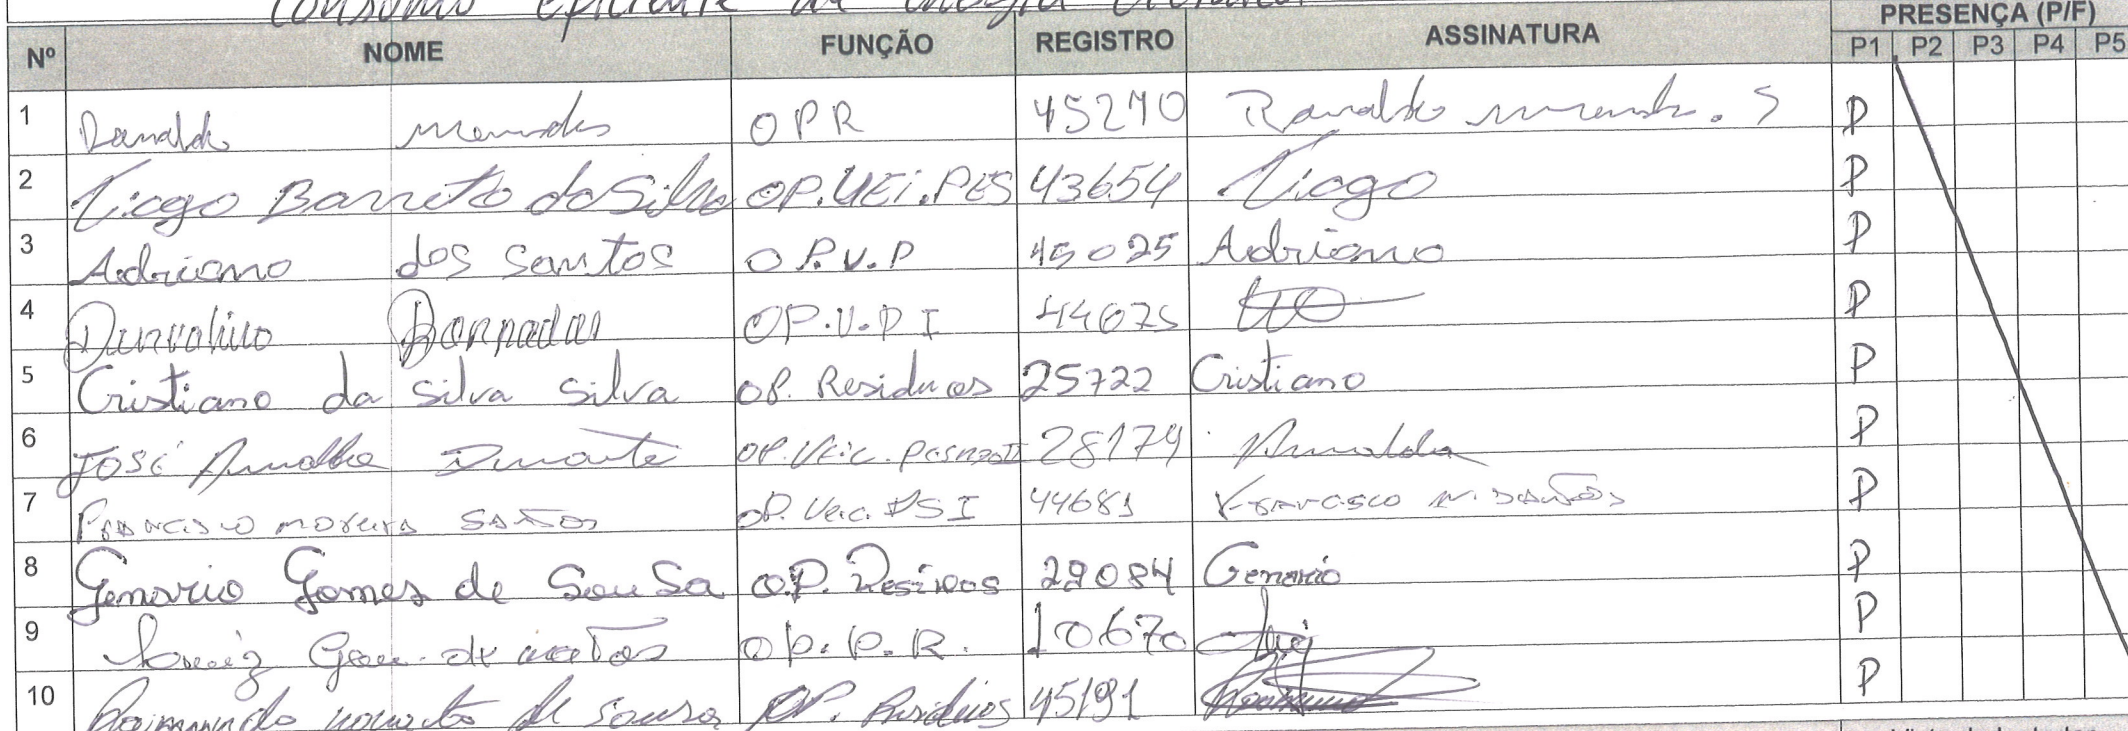 Consumo eficiente de energia
PRESENÇA (P/F)
Nº NOME FUNÇÃO REGISTRO ASSINATURA P1 P2 P3 P4 P5
1 Ranaldo mendes OPR 45270 Ranaldo P
2 Tiago Barreto da Silva OP.VEI.PES 43654 Tiago P
3 Adriano dos Santos OP.V.P 45025 Adriano P
4 Durvalino OP.V.P I 44075 P
5 Cristiano da silva silva OP. Residuos 25722 Cristiano P
6 JOSÉ Arnaldo Duarte OP. Veic. 28174 Arnaldo P
7 Francisco moreira SANTOS OP. Veic. PS I 44681 Francisco M. SANTOS P
8 Genario Gomes de SouSa O.P. 29084 Genario P
9 OP. P. R. 10670 P
10 Raimundo nonato de sousa OP. Residuos 45191 P